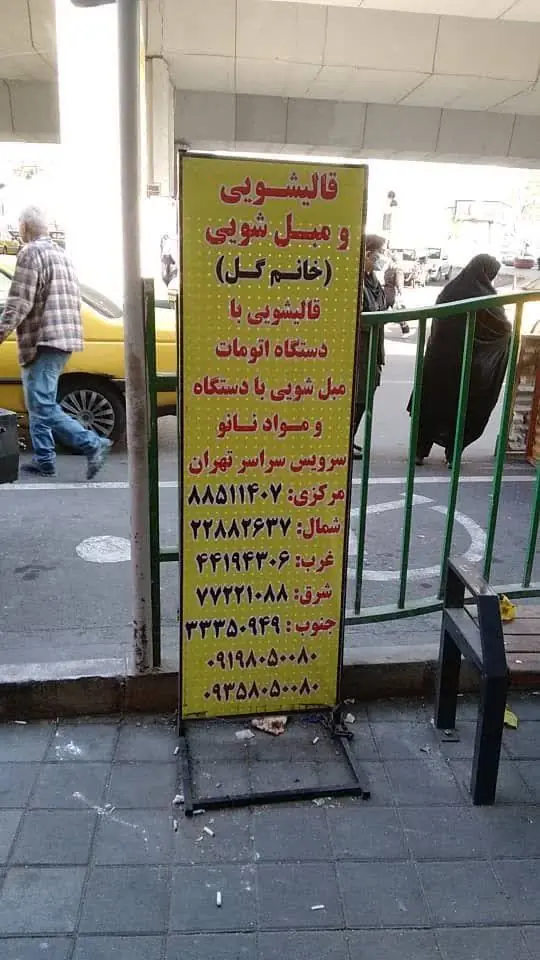 قالیشویی
و مبل شویی
(خانم گل)
قالیشویی با
دستگاه اتومات
مبل شویی با دستگاه
و مواد نانو
سرویس سراسر تهران
مرکزی: ۸۸۵۱۱۴۰۷
شمال: ۲۲۸۸۲۶۳۷
غرب: ۴۴۱۹۴۳۰۶
شرق: ۷۷۲۲۱۰۸۸
جنوب: ۳۳۳۵۰۹۴۹
۰۹۱۹۸۰۵۰۰۸۰
۰۹۳۵۸۰۵۰۰۸۰